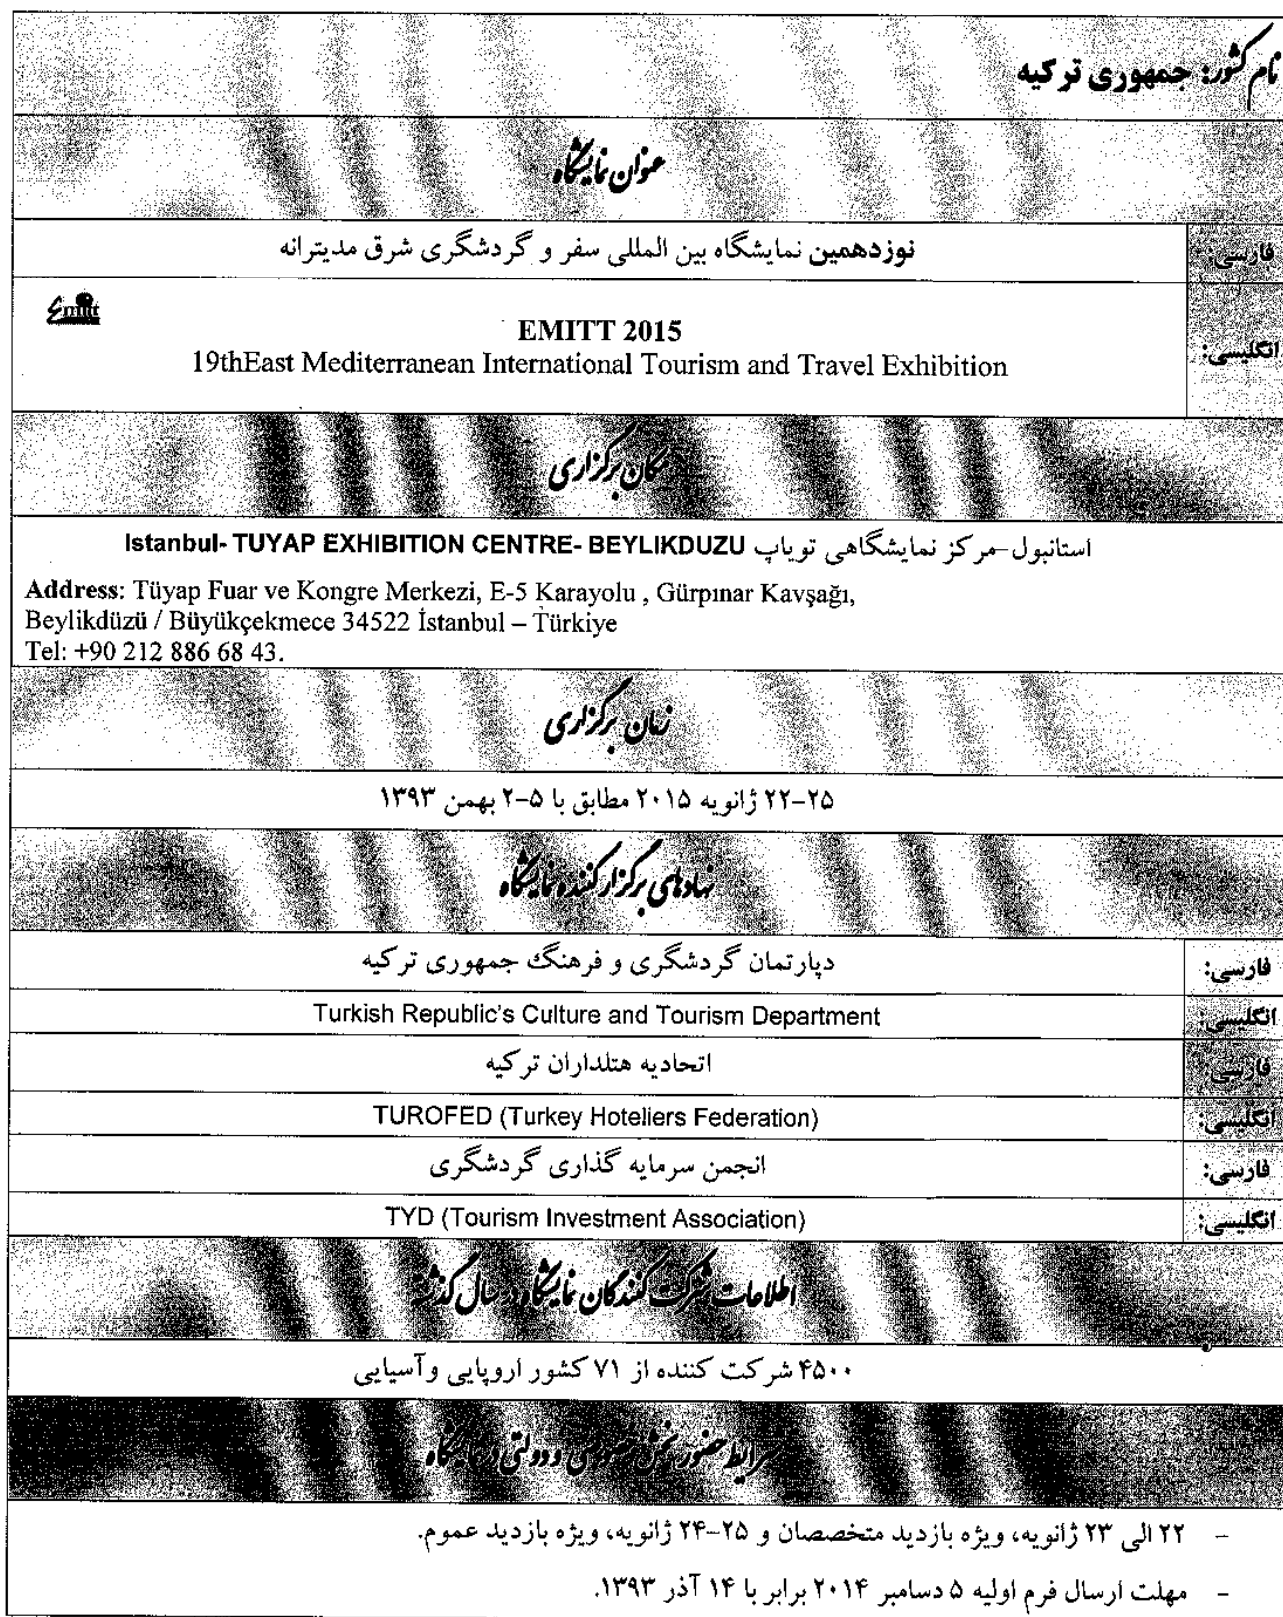 نام کشور: جمهوری ترکیه
عنوان نمایشگاه
فارسی: نوزدهمین نمایشگاه بین المللی سفر و گردشگری شرق مدیترانه
Emitt
انگلیسی: EMITT 2015
19thEast Mediterranean International Tourism and Travel Exhibition
مکان برگزاری
استانبول-مرکز نمایشگاهی تویاپ Istanbul- TUYAP EXHIBITION CENTRE- BEYLIKDUZU
Address: Tüyap Fuar ve Kongre Merkezi, E-5 Karayolu , Gürpınar Kavşağı,
Beylikdüzü / Büyükçekmece 34522 İstanbul – Türkiye
Tel: +90 212 886 68 43.
زمان برگزاری
۲۲-۲۵ ژانویه ۲۰۱۵ مطابق با ۵-۲ بهمن ۱۳۹۳
نهادهای برگزار کننده نمایشگاه
فارسی: دپارتمان گردشگری و فرهنگ جمهوری ترکیه
انگلیسی: Turkish Republic's Culture and Tourism Department
فارسی: اتحادیه هتلداران ترکیه
انگلیسی: TUROFED (Turkey Hoteliers Federation)
فارسی: انجمن سرمایه گذاری گردشگری
انگلیسی: TYD (Tourism Investment Association)
اطلاعات شرکت کنندگان نمایشگاه در سال گذشته
۴۵۰۰ شرکت کننده از ۷۱ کشور اروپایی وآسیایی
شرایط حضور بخش خصوصی و دولتی در نمایشگاه
- ۲۲ الی ۲۳ ژانویه، ویژه بازدید متخصصان و ۲۵-۲۴ ژانویه، ویژه بازدید عموم.
- مهلت ارسال فرم اولیه ۵ دسامبر ۲۰۱۴ برابر با ۱۴ آذر ۱۳۹۳.